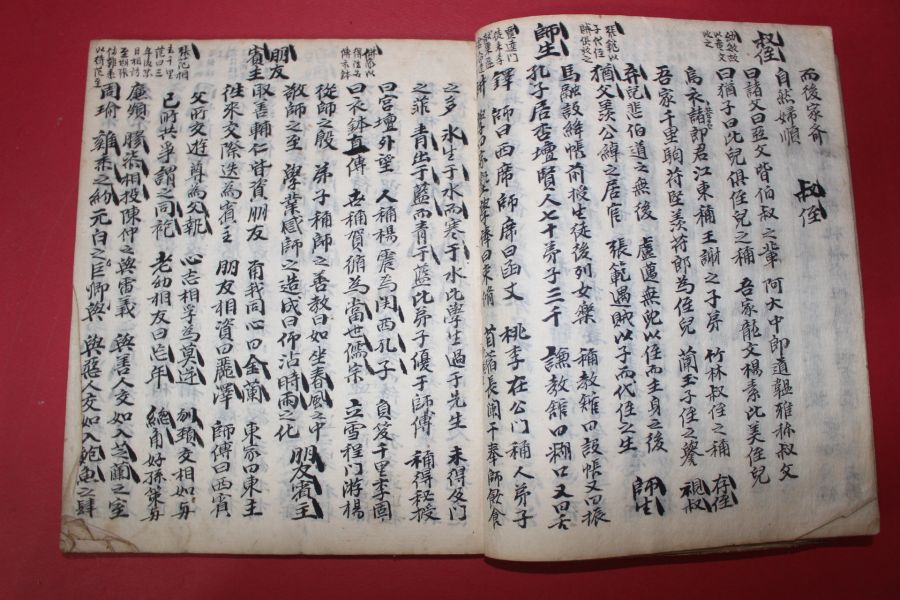 而後家齊 叔侄
自然婦順
叔侄
曰諸父曰亞父皆伯叔之輩 阿大中郎道韞雅称叔父
曰猶子曰比兒俱侄兒之稱 吾家龍文楊素比美侄兒
烏衣諸郎君江東稱王謝之子弟 竹林叔侄之稱 存侄
吾家千里駒苻堅羨苻郎為侄兒 蘭玉子侄之譽 視叔
弃兒悲伯道之無後 盧邁無兒以侄而主身之後 師生
猶父羨公綽之居官 張範遇賊以子而代侄之生
師生
馬融設絳帳前授生徒後列女樂 稱教館曰設帳又曰振
孔子居杏壇賢人七十弟子三千 謙教館曰糊口又曰舌
鐸 師曰西席師席曰函丈 桃李在公門稱人弟子
曰束脩 苜蓿長闌干奉師飲食
之多 氷生于水而寒于水比學生過于先生 未得及門
之菲 青出于藍而青于藍比弟子優于師傅 稱得秘授
曰宮墻外望 人稱楊震為関西孔子 負笈千里李固
曰衣鉢真傳 世稱賀循為當世儒宗 立雪程門游楊
從師之殷 弟子稱師之善教曰如坐春風之中
敎師之至 學業感師之造成曰仰沾時雨之化 朋友賓主
朋友
賓主
取善輔仁皆資朋友 爾我同心曰金蘭 東家曰東主
往來交際迭為賓主 朋友相資曰麗澤 師傅曰西賓
父所交遊尊為父執 心志相孚為莫逆 刎頸交相如與
己所共事謂之同袍 老幼相友曰忘年 總角好孫策與
廉頗 膠漆相投陳仲之與雷義 與善人交如入芝蘭之室
周瑜 雞黍之約元白之臣卿與 與惡人交如入鮑魚之肆